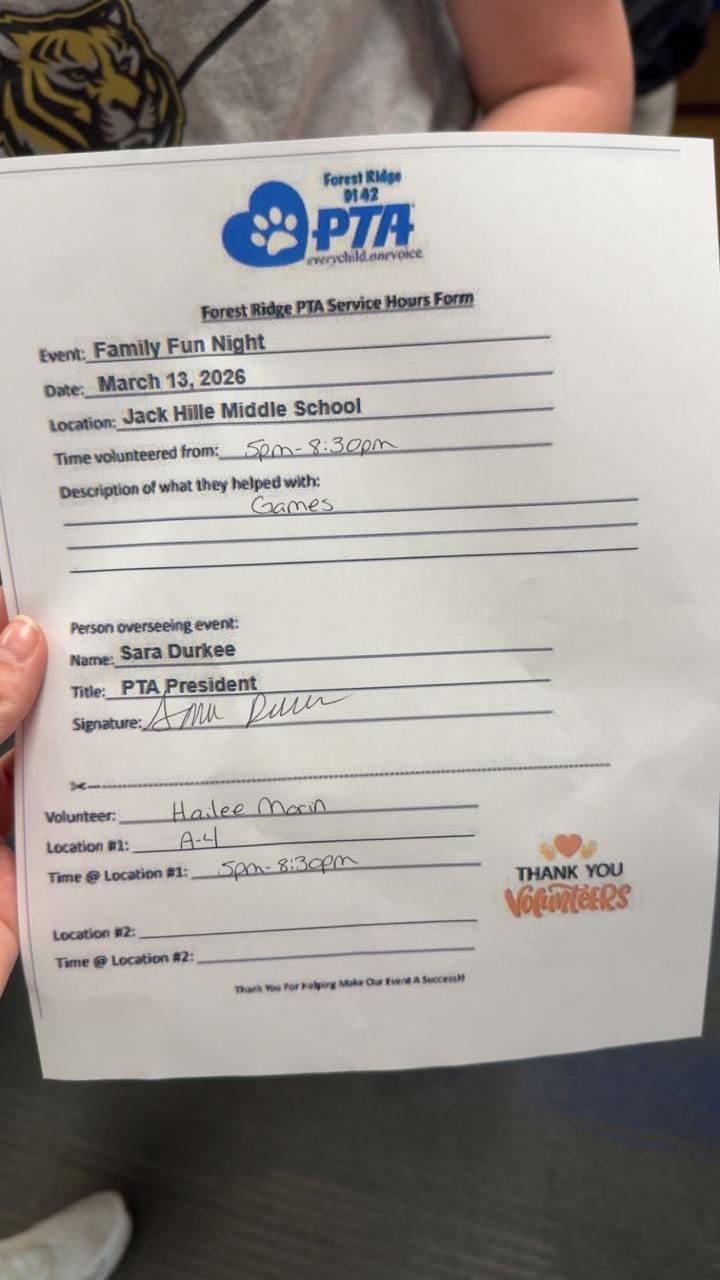 Forest Ridge
D142
PTA
everychild.onevoice
Forest Ridge PTA Service Hours Form
Event: Family Fun Night
Date: March 13, 2026
Location: Jack Hille Middle School
Time volunteered from: 5pm-8:30pm
Description of what they helped with:
Games
Person overseeing event:
Name: Sara Durkee
Title: PTA President
Signature:
Volunteer: Hailee Morin
Location #1: A-4
Time @ Location #1: 5pm-8:30pm
THANK YOU
VOLUNTEERS
Location #2:
Time @ Location #2:
Thank You For Helping Make Our Event A Success!!